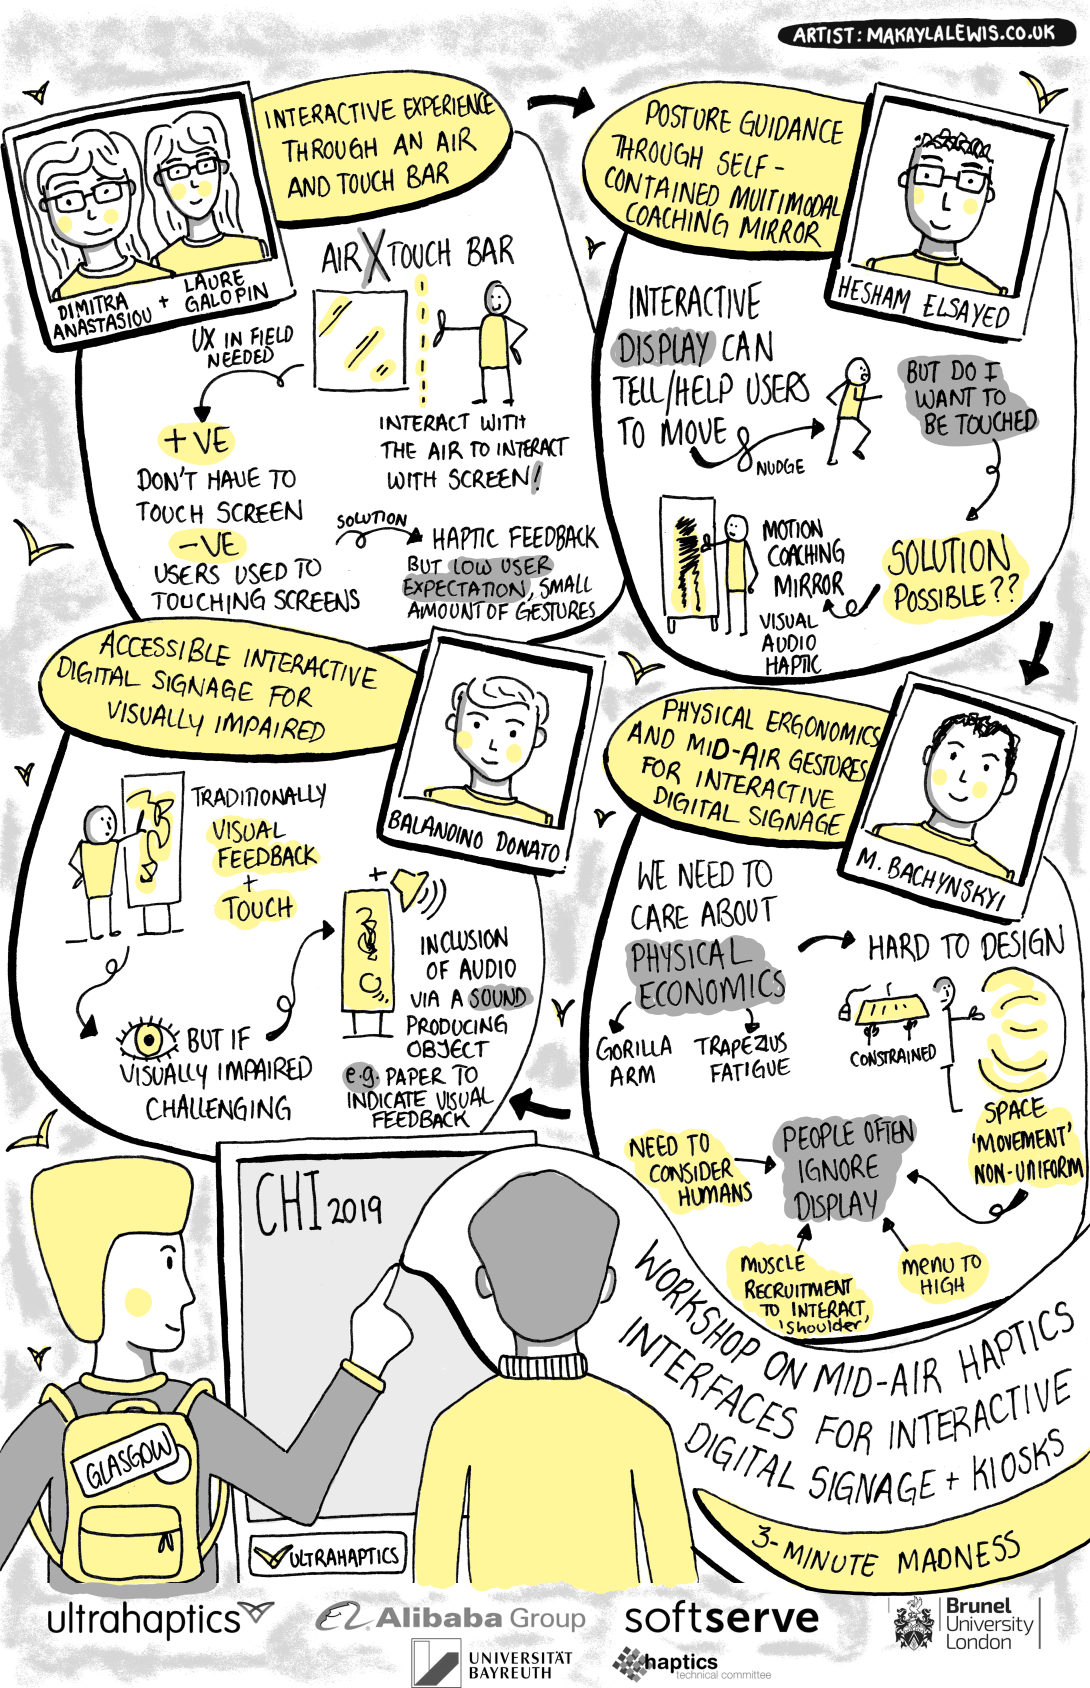 ARTIST: MAKAYLALEWIS.CO.UK
INTERACTIVE EXPERIENCE
THROUGH AN AIR
AND TOUCH BAR
DIMITRA
ANASTASIOU
+
LAURE
GALOPIN
AIR X TOUCH BAR
UX IN FIELD
NEEDED
+VE
DON'T HAVE TO
TOUCH SCREEN
-VE
USERS USED TO
TOUCHING SCREENS
INTERACT WITH
THE AIR TO INTERACT
WITH SCREEN!
SOLUTION
HAPTIC FEEDBACK
BUT LOW USER
EXPECTATION, SMALL
AMOUNT OF GESTURES
POSTURE GUIDANCE
THROUGH SELF-
CONTAINED MULTIMODAL
COACHING MIRROR
HESHAM ELSAYED
INTERACTIVE
DISPLAY CAN
TELL/HELP USERS
TO MOVE
NUDGE
BUT DO I
WANT TO
BE TOUCHED
SOLUTION
POSSIBLE??
MOTION
COACHING
MIRROR
VISUAL
AUDIO
HAPTIC
PHYSICAL ERGONOMICS
AND MID-AIR GESTURES
FOR INTERACTIVE
DIGITAL SIGNAGE
M. BACHYNSKYI
WE NEED TO
CARE ABOUT
PHYSICAL
ECONOMICS
GORILLA
ARM
TRAPEZIUS
FATIGUE
HARD TO DESIGN
CONSTRAINED
SPACE
'MOVEMENT'
NON-UNIFORM
NEED TO
CONSIDER
HUMANS
PEOPLE OFTEN
IGNORE
DISPLAY
MUSCLE
RECRUITMENT
TO INTERACT
'shoulder'
MENU TO
HIGH
ACCESSIBLE INTERACTIVE
DIGITAL SIGNAGE FOR
VISUALLY IMPAIRED
BALANDINO DONATO
TRADITIONALLY
VISUAL
FEEDBACK
+
TOUCH
BUT IF
VISUALLY IMPAIRED
CHALLENGING
+
INCLUSION
OF AUDIO
VIA A SOUND
PRODUCING
OBJECT
e.g. PAPER TO
INDICATE VISUAL
FEEDBACK
CHI 2019
GLASGOW
ULTRAHAPTICS
WORKSHOP ON MID-AIR HAPTICS
INTERFACES FOR INTERACTIVE
DIGITAL SIGNAGE + KIOSKS
3-MINUTE MADNESS
ultrahaptics
Alibaba Group
softserve
Brunel
University
London
UNIVERSITÄT
BAYREUTH
haptics
technical committee